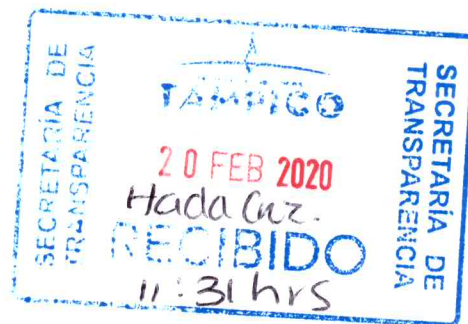 SECRETARÍA DE
TRANSPARENCIA
TAMPICO
20 FEB 2020
Hada Cruz.
RECIBIDO
11:31 hrs
SECRETARÍA DE
TRANSPARENCIA